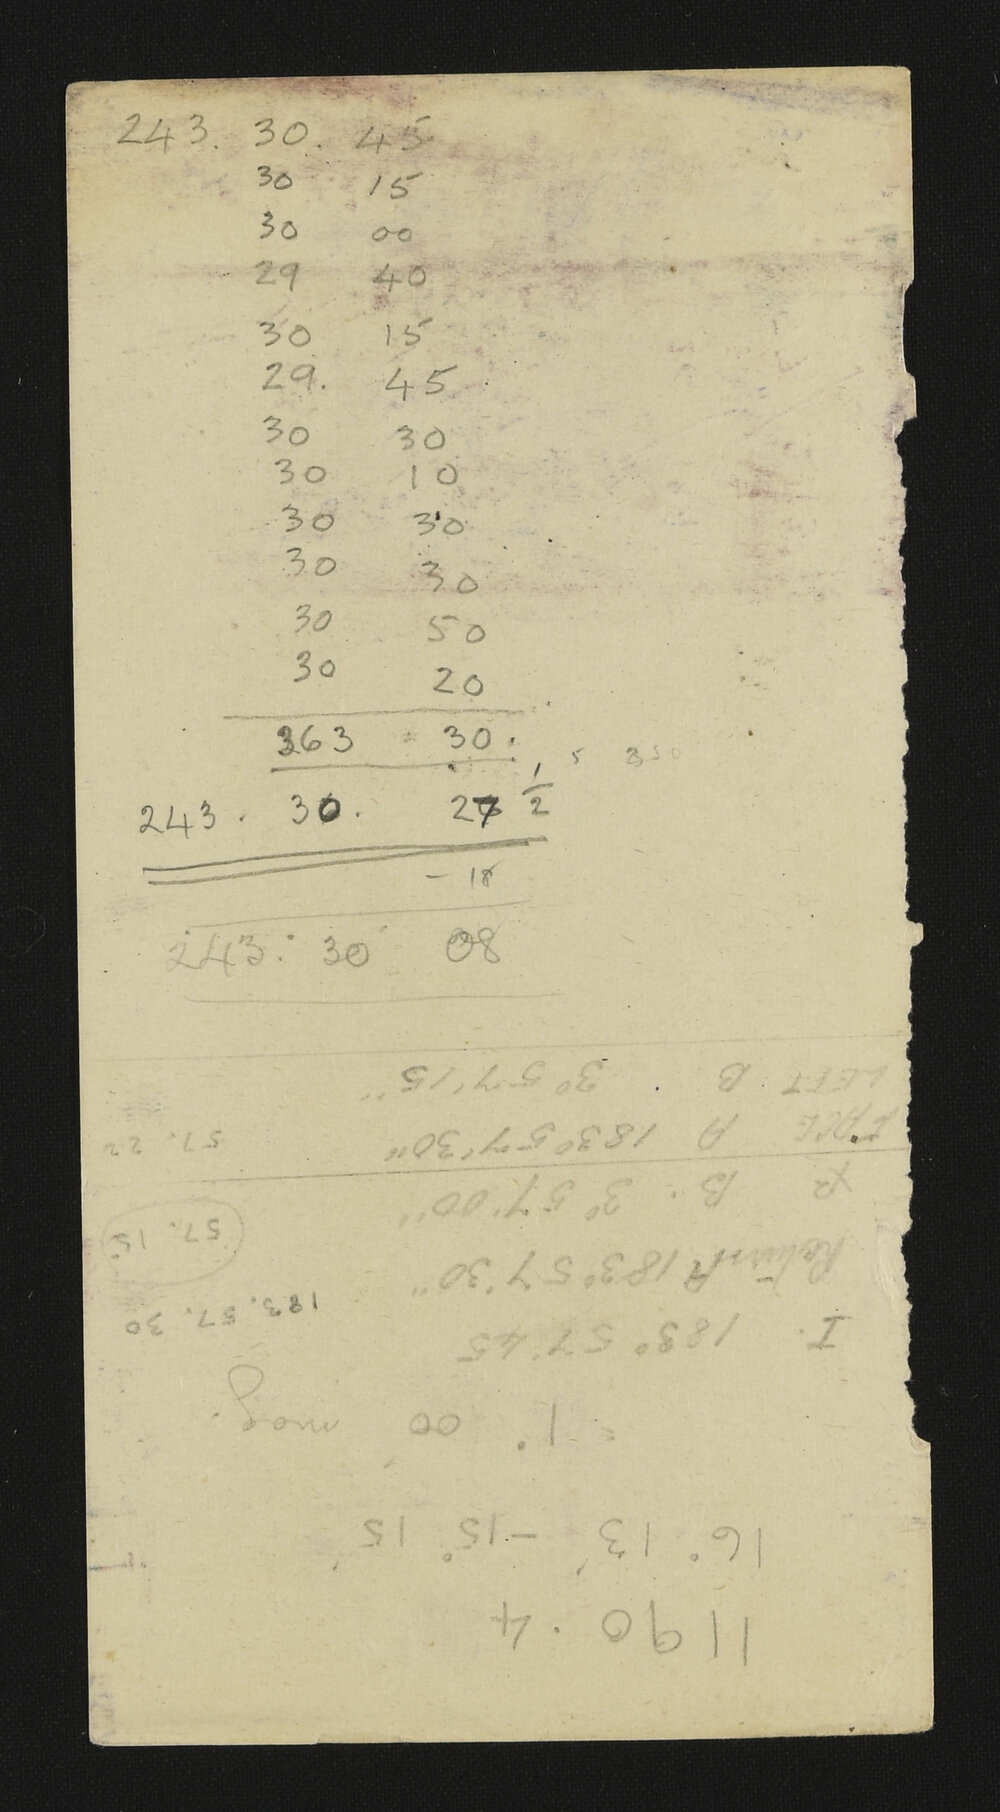 243. 30. 45
30 15
30 00
29 40
30 15
29. 45
30 30
30 10
30 30
30 30
30 50
30 20
363 30.
5 350
243. 30. 27 1/2
- 18
243. 30 08
1190.4
16° 13' - 15° 15'
= 1° 00' mag.
I. 183° 57' 45
183. 57. 30
Return A 183° 57' 30"
57. 15
R B. 3° 57' 00"
FACE A 183° 57' 30"
57. 22
LEFT B. 3° 57' 15"